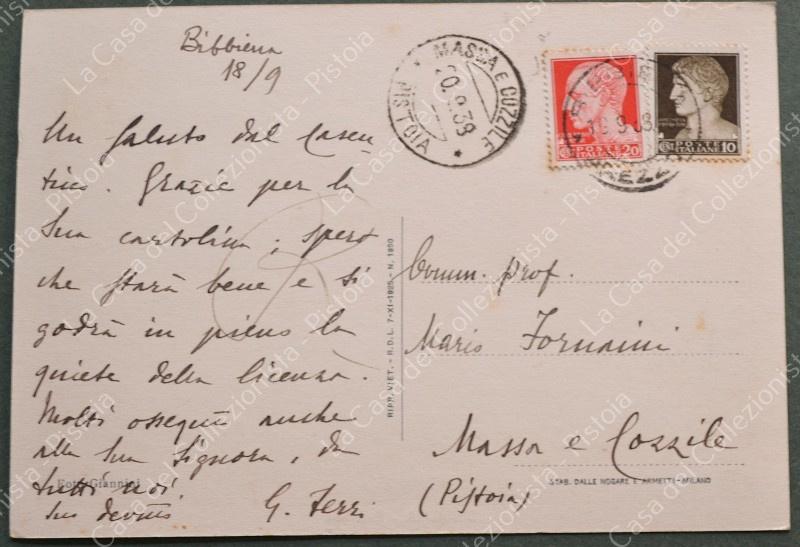 Bibbiena
18/9
Un saluto dal Casen
tino. Grazie per la
Sua cartolina; spero
che starà bene e si
godrà in pieno la
quiete della licenza.
Molti ossequi anche
alla Sua Signora, da
tutti noi
Suo devmo
G. Ferri
Foto Giannini
MASSA E COZZILE
20.9.38
PISTOIA
POSTE
ITALIANE 20
POSTE
ITALIANE 10
RIPR. VIET. - R.D.L. 7-XI-1925 - N. 1950
Comm. prof.
Mario Fornaini
Massa e Cozzile
(Pistoia)
STAB. DALLE NOGARE E ARMETTI - MILANO
La Casa del Collezionista - Pistoia